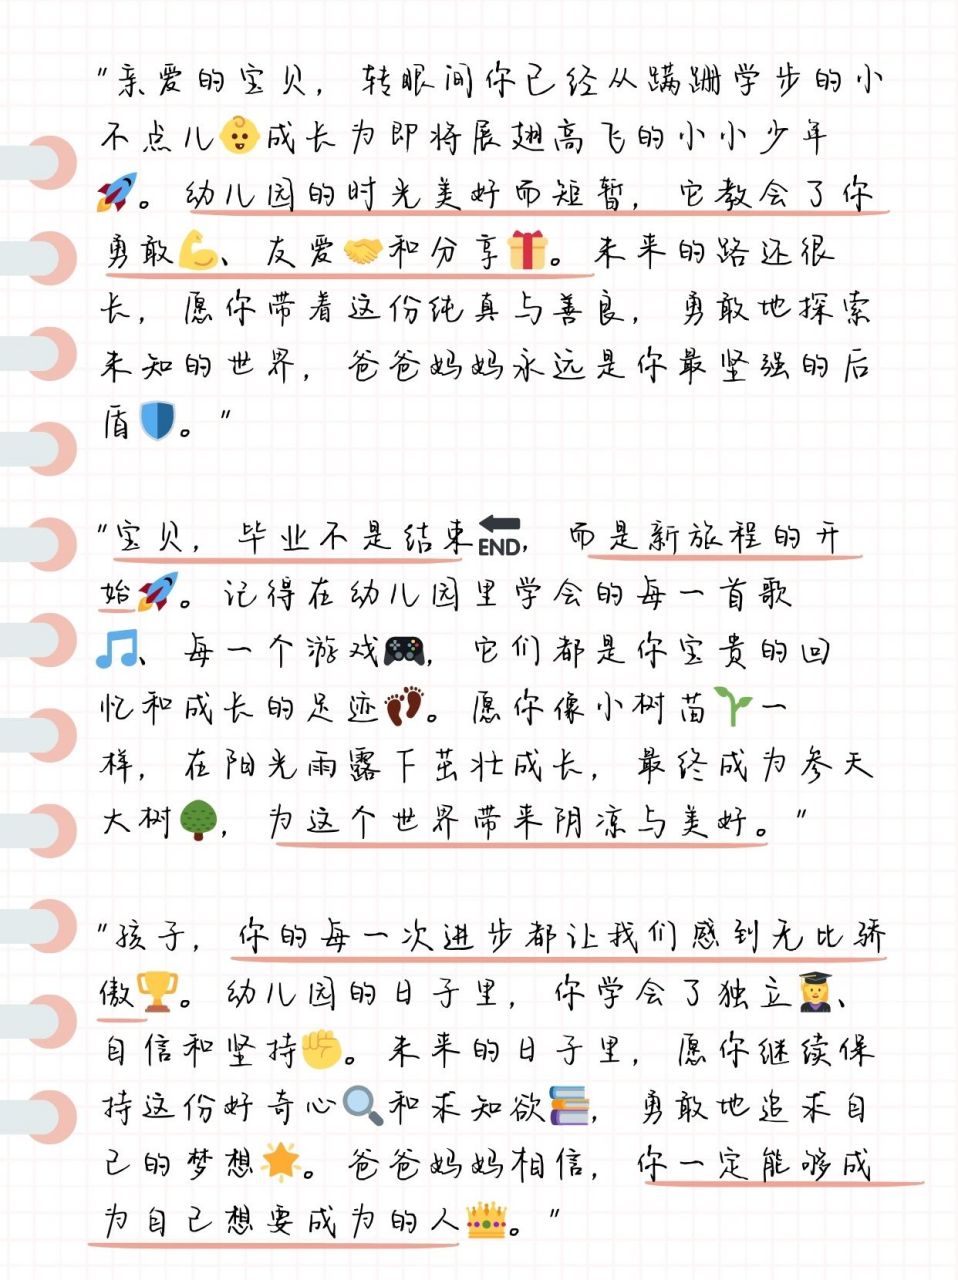 "亲爱的宝贝，转眼间你已经从蹒跚学步的小
不点儿👶成长为即将展翅高飞的小小少年
🚀。幼儿园的时光美好而短暂，它教会了你
勇敢💪、友爱🤝和分享🎁。未来的路还很
长，愿你带着这份纯真与善良，勇敢地探索
未知的世界，爸爸妈妈永远是你最坚强的后
盾🛡️。"
"宝贝，毕业不是结束🔚，而是新旅程的开
始🚀。记得在幼儿园里学会的每一首歌
🎵、每一个游戏🎮，它们都是你宝贵的回
忆和成长的足迹👣。愿你像小树苗🌱一
样，在阳光雨露下茁壮成长，最终成为参天
大树🌳，为这个世界带来阴凉与美好。"
"孩子，你的每一次进步都让我们感到无比骄
傲🏆。幼儿园的日子里，你学会了独立👩‍🎓、
自信和坚持✊。未来的日子里，愿你继续保
持这份好奇心🔍和求知欲📚，勇敢地追求自
己的梦想🌟。爸爸妈妈相信，你一定能够成
为自己想要成为的人👑。"